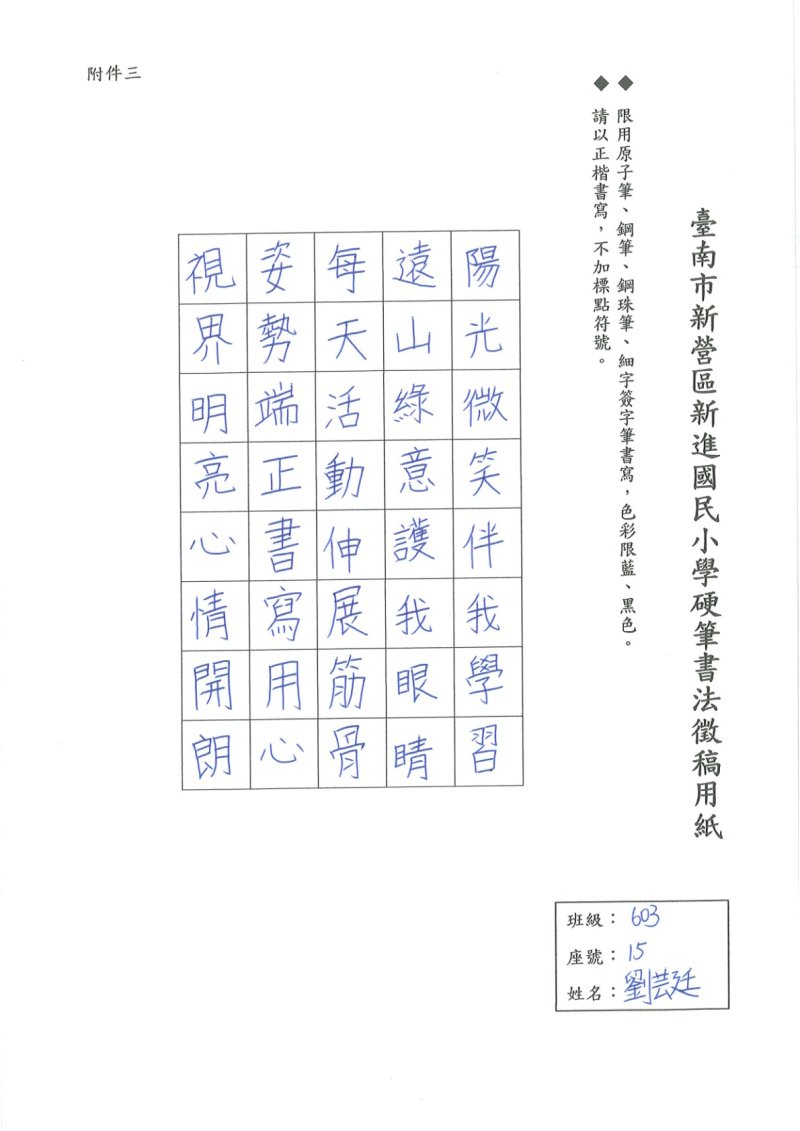 附件三
臺南市新營區新進國民小學硬筆書法徵稿用紙
◆ 限用原子筆、鋼筆、鋼珠筆、細字簽字筆書寫，色彩限藍、黑色。
◆ 請以正楷書寫，不加標點符號。
陽光微笑伴我學習
遠山綠意護我眼睛
每天活動伸展筋骨
姿勢端正書寫用心
視界明亮心情開朗
班級：603
座號：15
姓名：劉芸廷